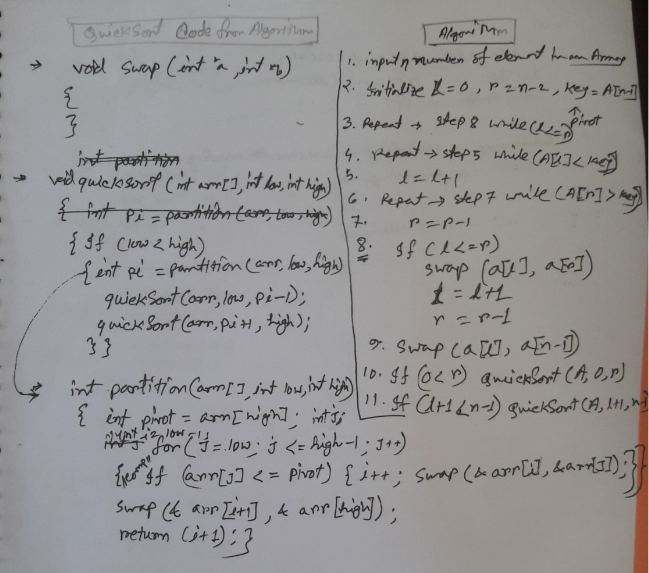 QuickSort Code from Algorithm
→ void swap (int *a, int *b)
{
}
int partition
→ void quicksort (int arr[], int low, int high)
{ int Pi = partition (arr, low, high)
{ If (low < high)
{ int pi = partition (arr, low, high)
quickSort (arr, low, pi-1);
quickSort (arr, pi+1, high);
} }
→ int partition (arr[], int low, int high)
{ int pivot = arr[high]; int j;
int i = low-1;
for (J = low; J <= high-1; J++)
{ If (arr[J] <= pivot) { i++; swap (& arr[i], & arr[J]); } }
swap (& arr[i+1], & arr[high]);
return (i+1); }
Algorithm
1. input n number of element in an Array
2. Initialize l = 0, r = n-2, key = A[n-1]
↑ pivot
3. Repeat → step 8 while (l <= r)
4. Repeat → step 5 while (A[l] < key)
5. l = l+1
6. Repeat → step 7 while (A[r] > key)
7. r = r-1
8. If (l <= r)
swap (a[l], a[r])
l = l+1
r = r-1
9. swap (a[l], a[n-1])
10. If (0 < r) quickSort (A, 0, r)
11. If (l+1 < n-1) quickSort (A, l+1, n-1)